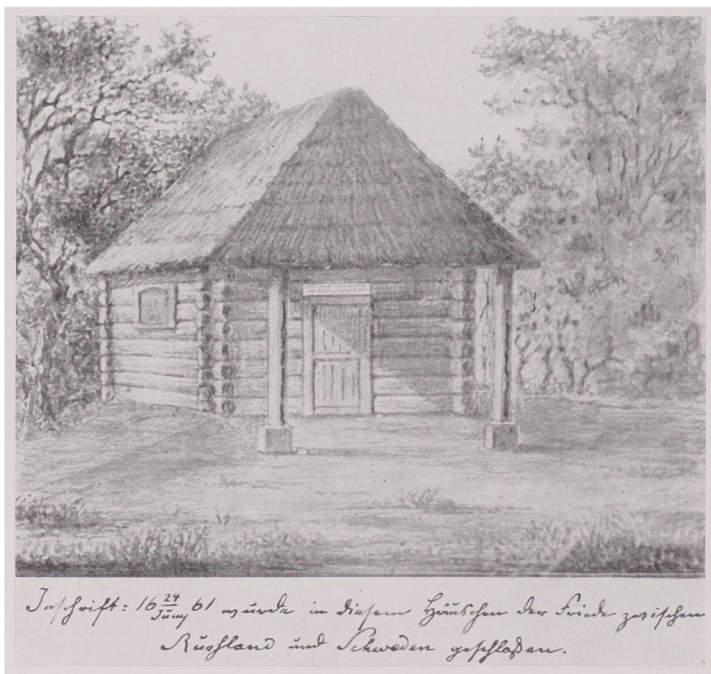 Inschrift: 16 24/Juny 61 wurde in diesem Häuschen der Friede zwischen
Russland und Schweden geschloßen.